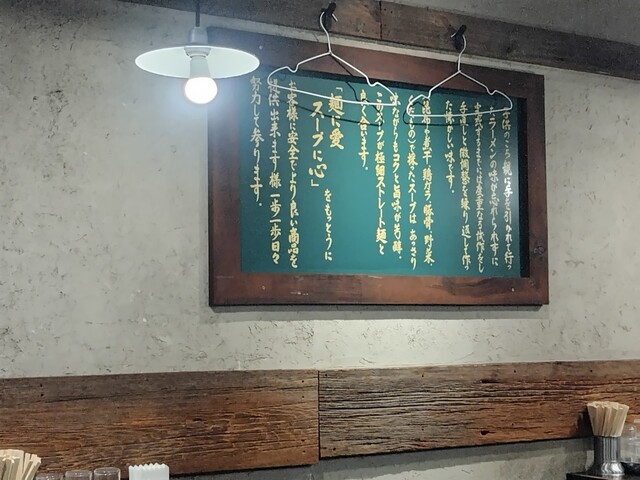 子供のころ親に手を引かれて行っ
たラーメンの味が忘れられずに
手直しと微調整を繰り返して作っ
た懐かしい味です。
昆布や煮干、鶏ガラ、豚骨、野菜、
で採ったスープは、あっさり
味ながらもコクと旨味が芳醇、
このスープが極細ストレート麺と
良く合います。
「麺に愛
スープに心」をもっとうに
お客様に安全でより良い商品を
提供出来ます様一歩一歩日々
努力して参ります。